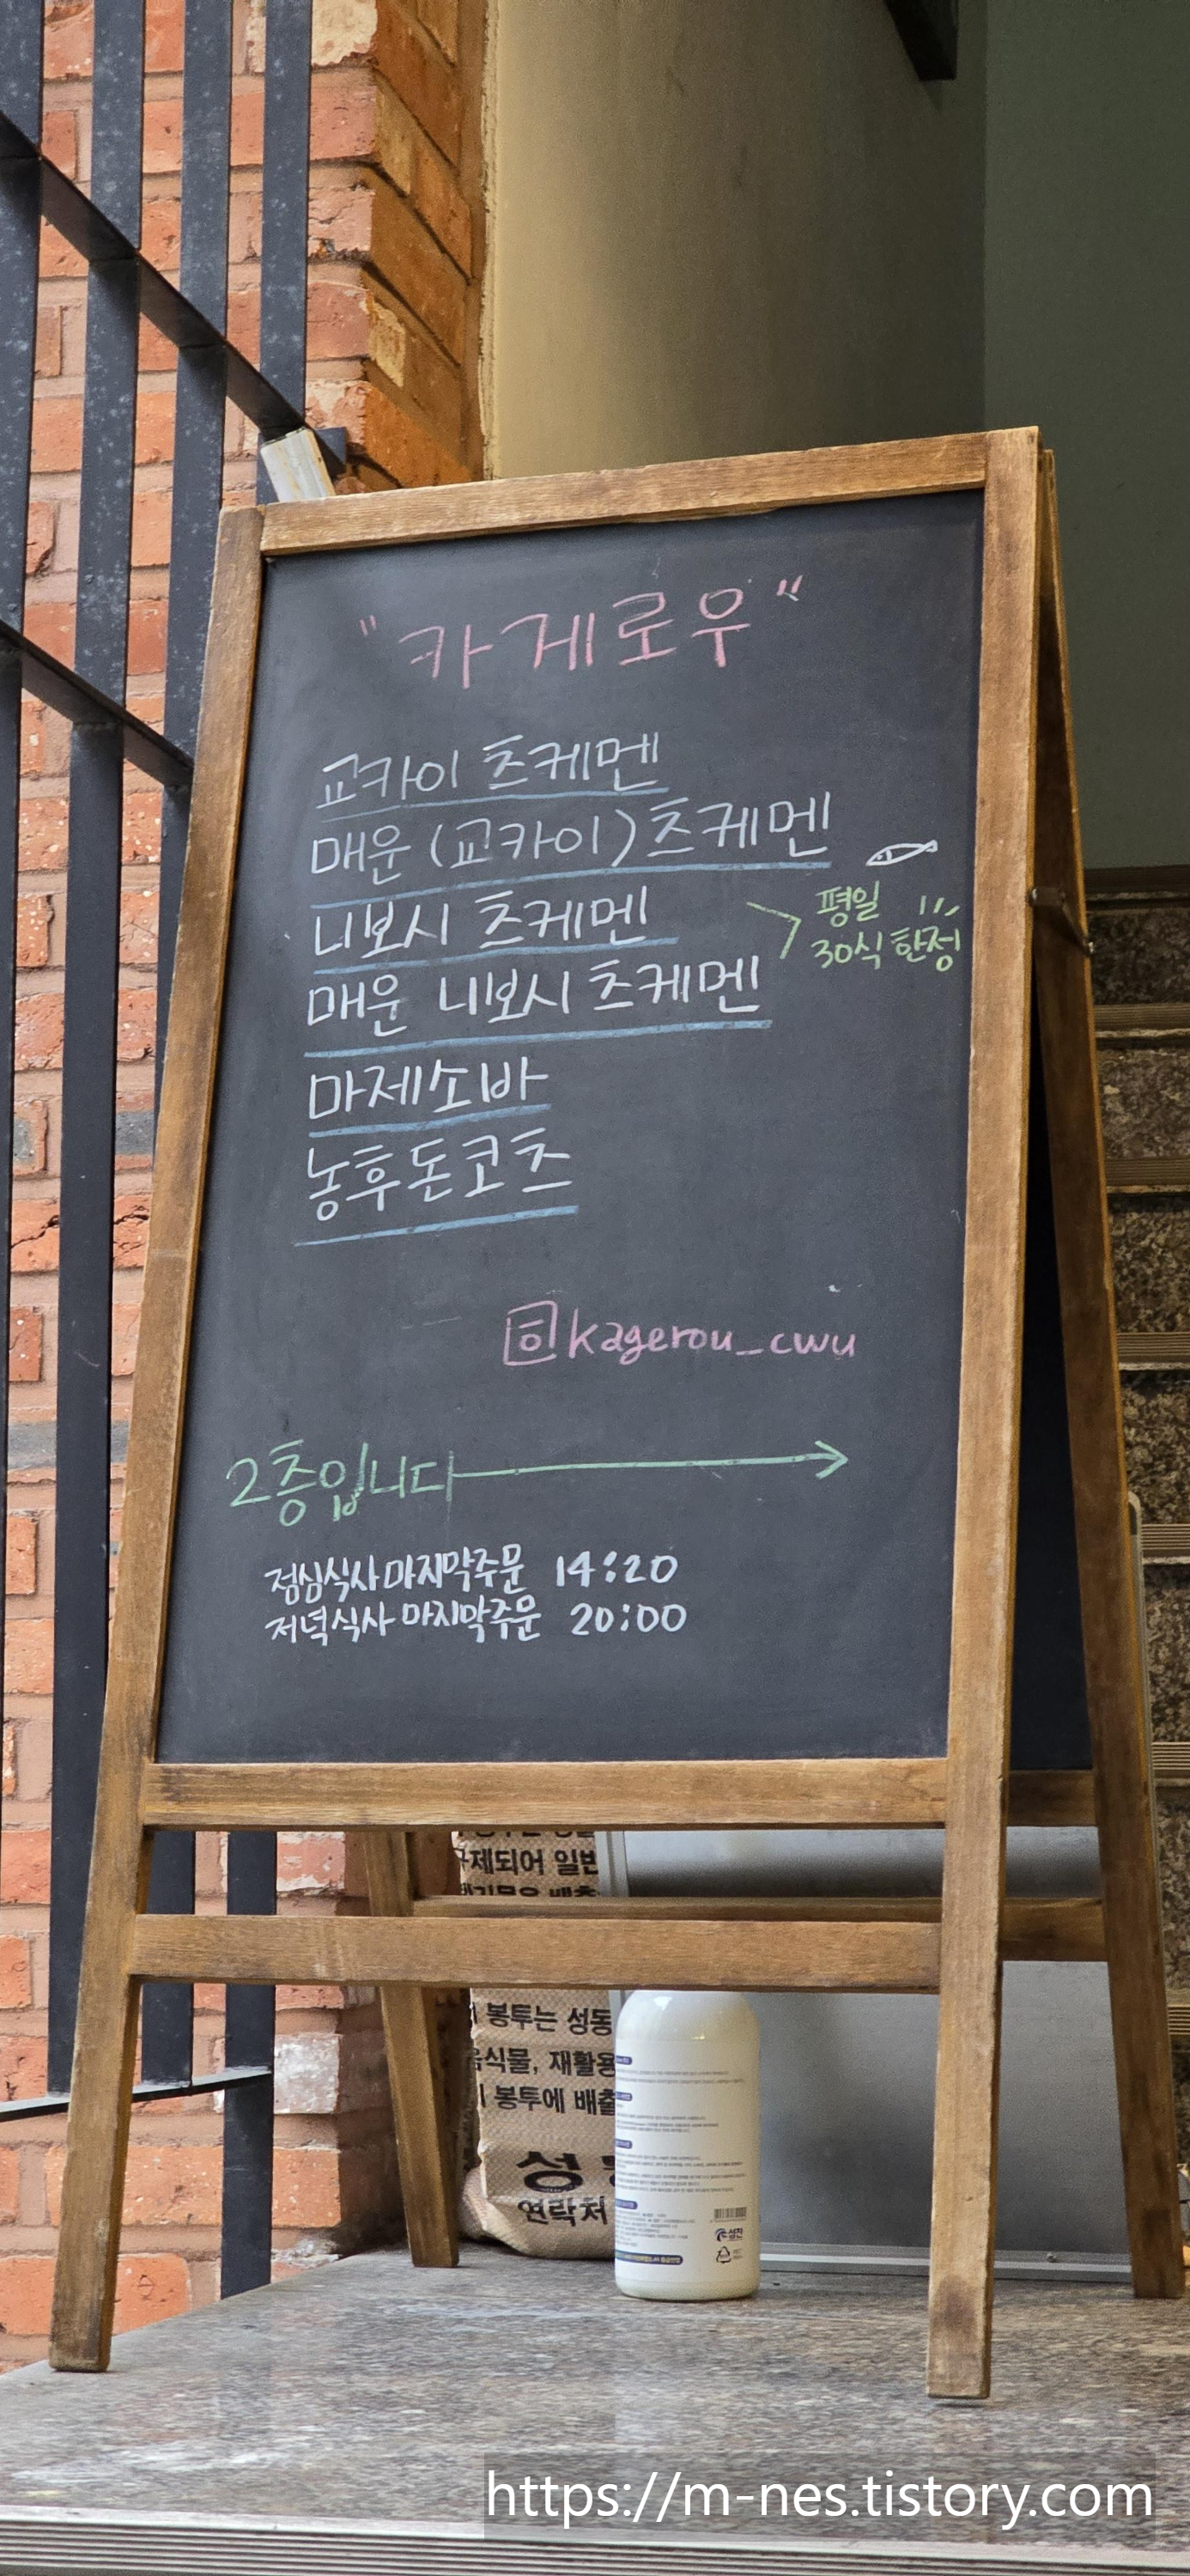 "카게로우"
교카이 츠케멘
매운 (교카이) 츠케멘
니보시 츠케멘
매운 니보시 츠케멘
평일
30식 한정
마제소바
농후돈코츠
kagerou_cwu
2층입니다
점심식사 마지막주문 14:20
저녁식사 마지막주문 20:00
제되어 일반
봉투는 성동
식물, 재활용
봉투에 배출
성
연락처
https://m-nes.tistory.com